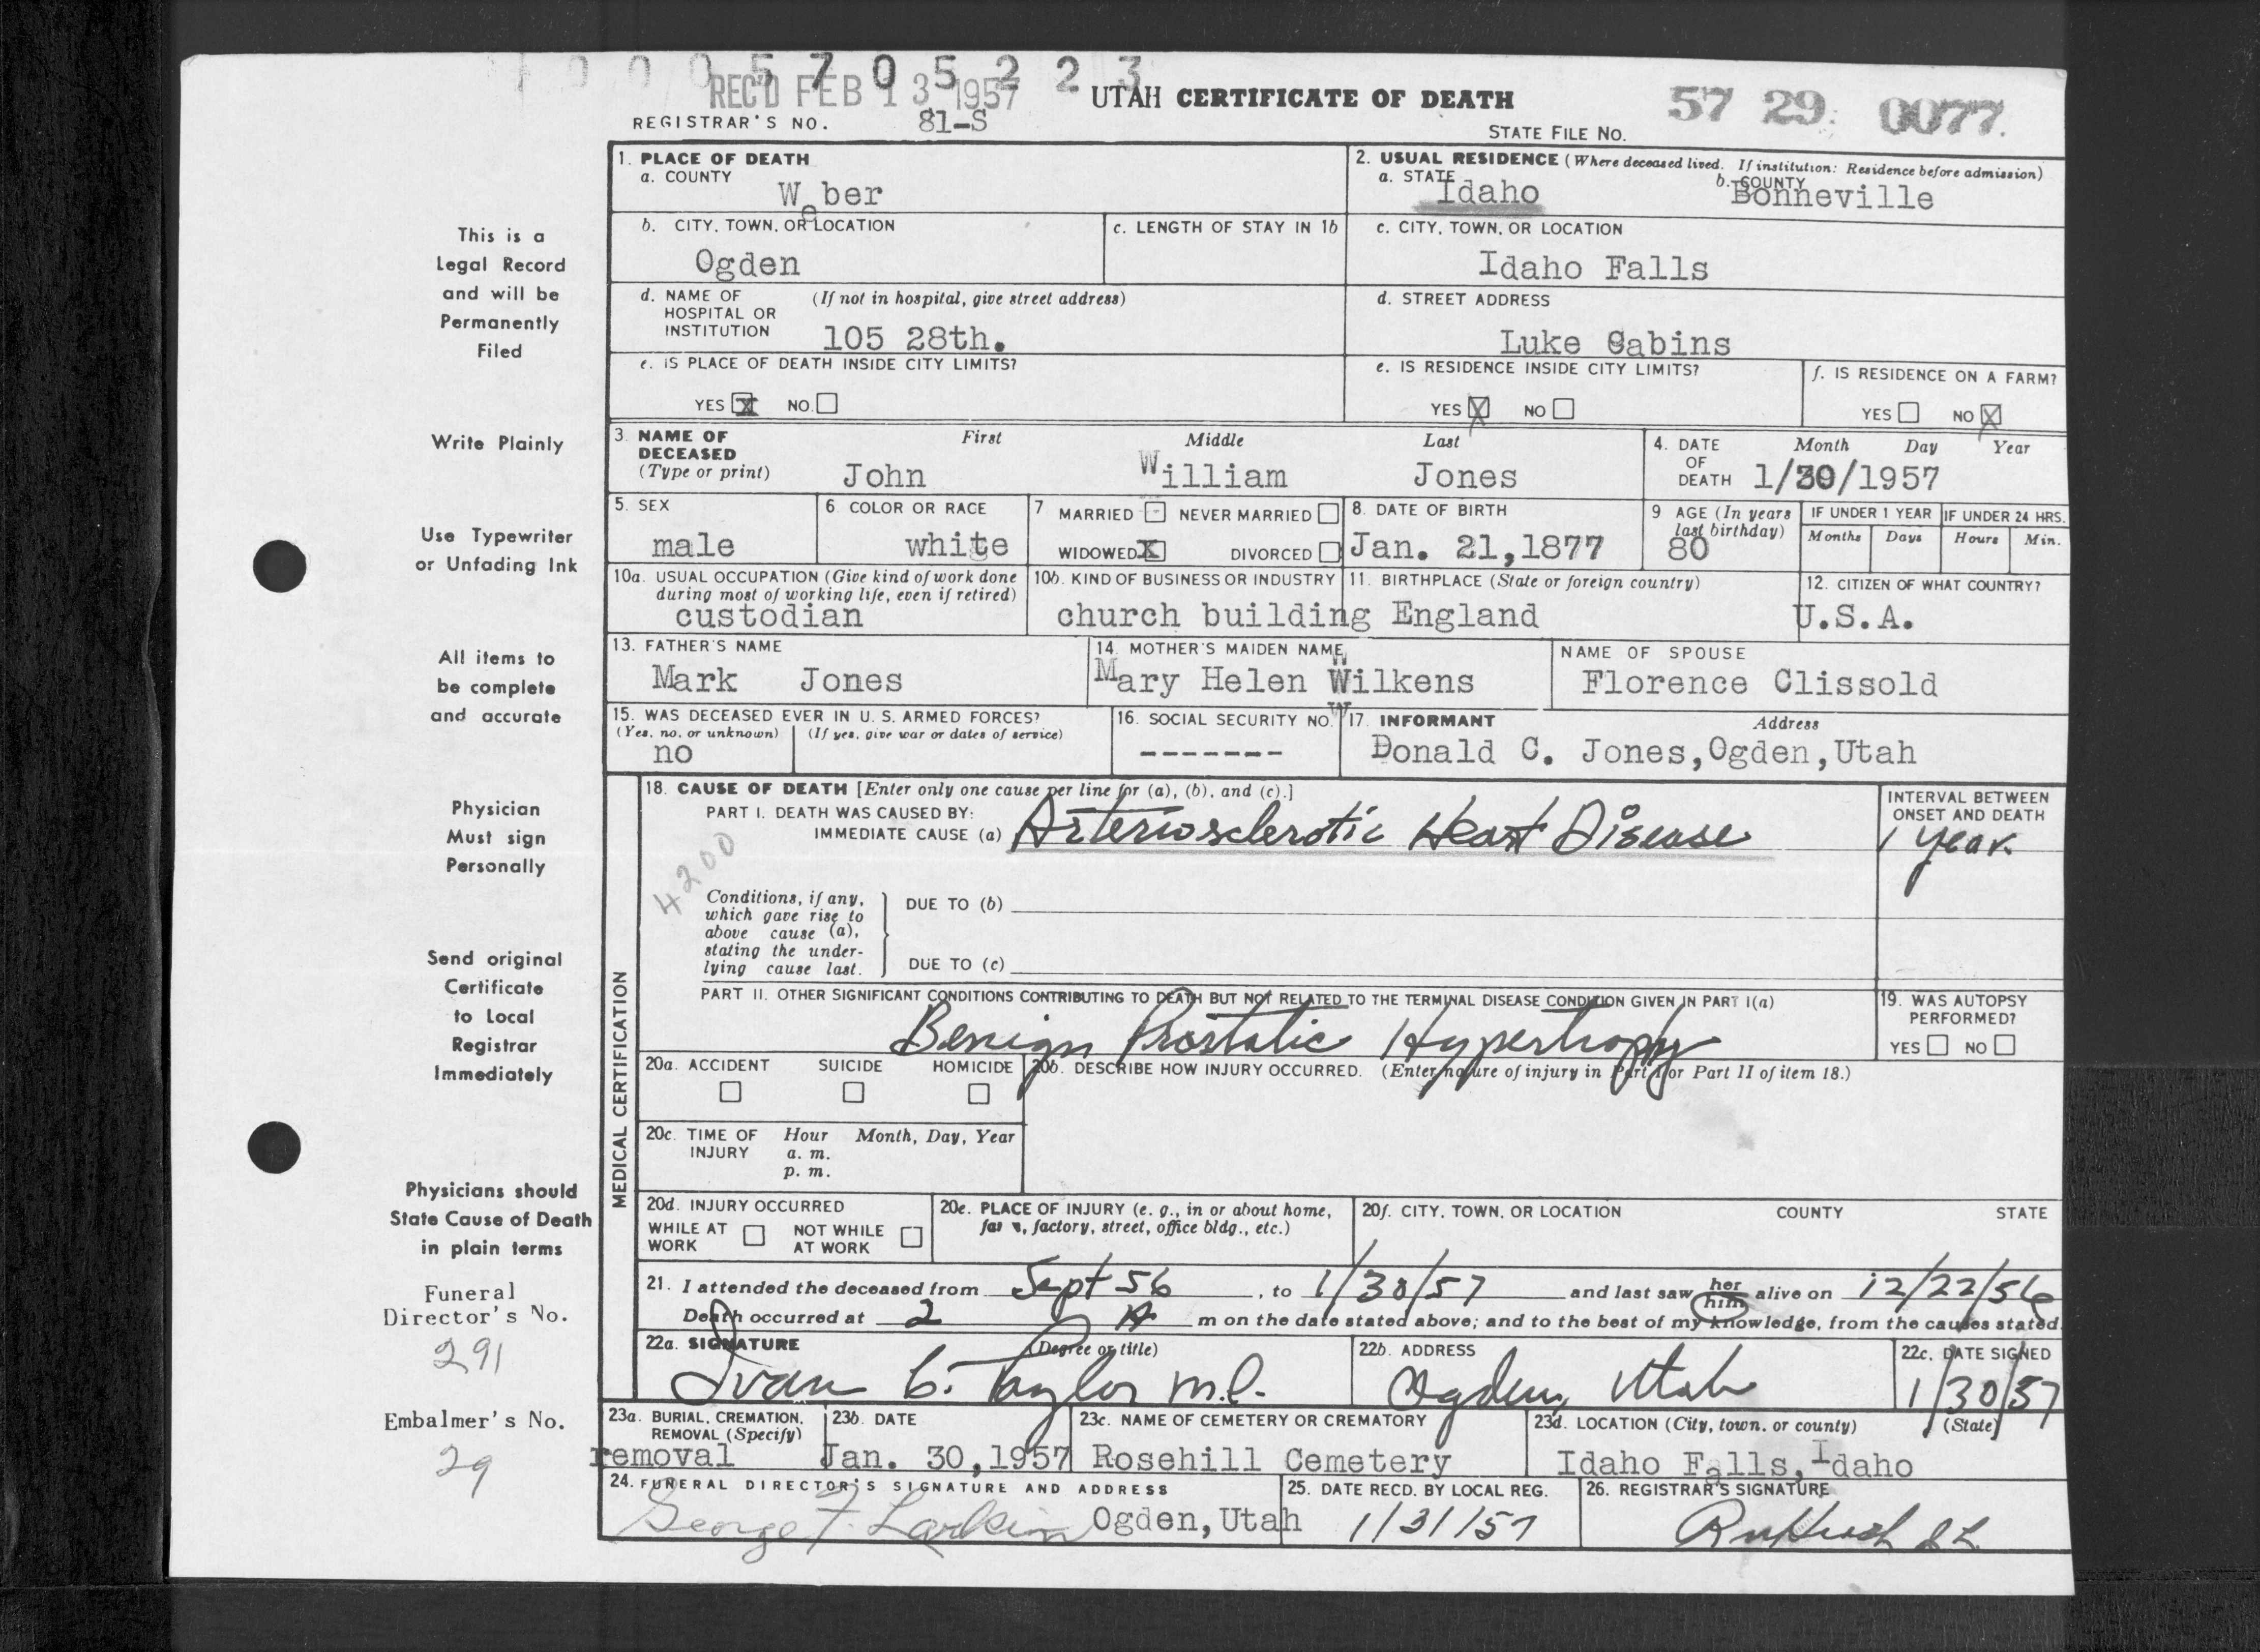 1 0 0 0 5 7 0 5 2 2 3
REC'D FEB 13 1957
UTAH CERTIFICATE OF DEATH
57 29 0077.
REGISTRAR'S NO. 81-S
STATE FILE NO.
1. PLACE OF DEATH
a. COUNTY
Weber
2. USUAL RESIDENCE (Where deceased lived. If institution: Residence before admission)
a. STATE Idaho
b. COUNTY Bonneville
b. CITY, TOWN, OR LOCATION
Ogden
c. LENGTH OF STAY IN 1b
c. CITY, TOWN, OR LOCATION
Idaho Falls
d. NAME OF HOSPITAL OR INSTITUTION
(If not in hospital, give street address)
105 28th.
d. STREET ADDRESS
Luke Cabins
e. IS PLACE OF DEATH INSIDE CITY LIMITS?
YES X NO
e. IS RESIDENCE INSIDE CITY LIMITS?
YES X NO
f. IS RESIDENCE ON A FARM?
YES NO X
3. NAME OF DECEASED (Type or print)
First Middle Last
John William Jones
4. DATE OF DEATH
Month Day Year
1/30/1957
5. SEX
male
6. COLOR OR RACE
white
7 MARRIED NEVER MARRIED
WIDOWED X DIVORCED
8. DATE OF BIRTH
Jan. 21,1877
9 AGE (In years last birthday)
80
IF UNDER 1 YEAR
Months Days
IF UNDER 24 HRS.
Hours Min.
10a. USUAL OCCUPATION (Give kind of work done during most of working life, even if retired)
custodian
10b. KIND OF BUSINESS OR INDUSTRY
church building
11. BIRTHPLACE (State or foreign country)
England
12. CITIZEN OF WHAT COUNTRY?
U.S.A.
13. FATHER'S NAME
Mark Jones
14. MOTHER'S MAIDEN NAME
Mary Helen Wilkens
NAME OF SPOUSE
Florence Clissold
15. WAS DECEASED EVER IN U. S. ARMED FORCES?
(Yes, no, or unknown) (If yes, give war or dates of service)
no
16. SOCIAL SECURITY NO.
-------
17. INFORMANT Address
Donald C. Jones,Ogden,Utah
MEDICAL CERTIFICATION
18. CAUSE OF DEATH [Enter only one cause per line for (a), (b), and (c).]
PART I. DEATH WAS CAUSED BY:
IMMEDIATE CAUSE (a) Arteriosclerotic Heart Disease
INTERVAL BETWEEN ONSET AND DEATH
1 year.
4200
Conditions, if any, which gave rise to above cause (a), stating the underlying cause last.
DUE TO (b)
DUE TO (c)
PART II. OTHER SIGNIFICANT CONDITIONS CONTRIBUTING TO DEATH BUT NOT RELATED TO THE TERMINAL DISEASE CONDITION GIVEN IN PART I(a)
Benign Prostatic Hypertrophy
19. WAS AUTOPSY PERFORMED?
YES NO
20a. ACCIDENT SUICIDE HOMICIDE
20b. DESCRIBE HOW INJURY OCCURRED. (Enter nature of injury in Part I or Part II of item 18.)
20c. TIME OF INJURY
Hour Month, Day, Year
a. m.
p. m.
20d. INJURY OCCURRED
WHILE AT WORK NOT WHILE AT WORK
20e. PLACE OF INJURY (e. g., in or about home, farm, factory, street, office bldg., etc.)
20f. CITY, TOWN, OR LOCATION COUNTY STATE
21. I attended the deceased from Sept 56, to 1/30/57 and last saw her him alive on 12/22/56
Death occurred at 2 A m on the date stated above; and to the best of my knowledge, from the causes stated.
22a. SIGNATURE (Degree or title)
Ivan C. Taylor M.D.
22b. ADDRESS
Ogden, Utah
22c. DATE SIGNED
1/30/57
23a. BURIAL, CREMATION, REMOVAL (Specify)
removal
23b. DATE
Jan. 30,1957
23c. NAME OF CEMETERY OR CREMATORY
Rosehill Cemetery
23d. LOCATION (City, town, or county) (State)
Idaho Falls, Idaho
24. FUNERAL DIRECTOR'S SIGNATURE AND ADDRESS
George F. Larkin Ogden,Utah
25. DATE RECD. BY LOCAL REG.
1/31/57
26. REGISTRAR'S SIGNATURE
This is a
Legal Record
and will be
Permanently
Filed
Write Plainly
Use Typewriter
or Unfading Ink
All items to
be complete
and accurate
Physician
Must sign
Personally
Send original
Certificate
to Local
Registrar
Immediately
Physicians should
State Cause of Death
in plain terms
Funeral
Director's No.
291
Embalmer's No.
29